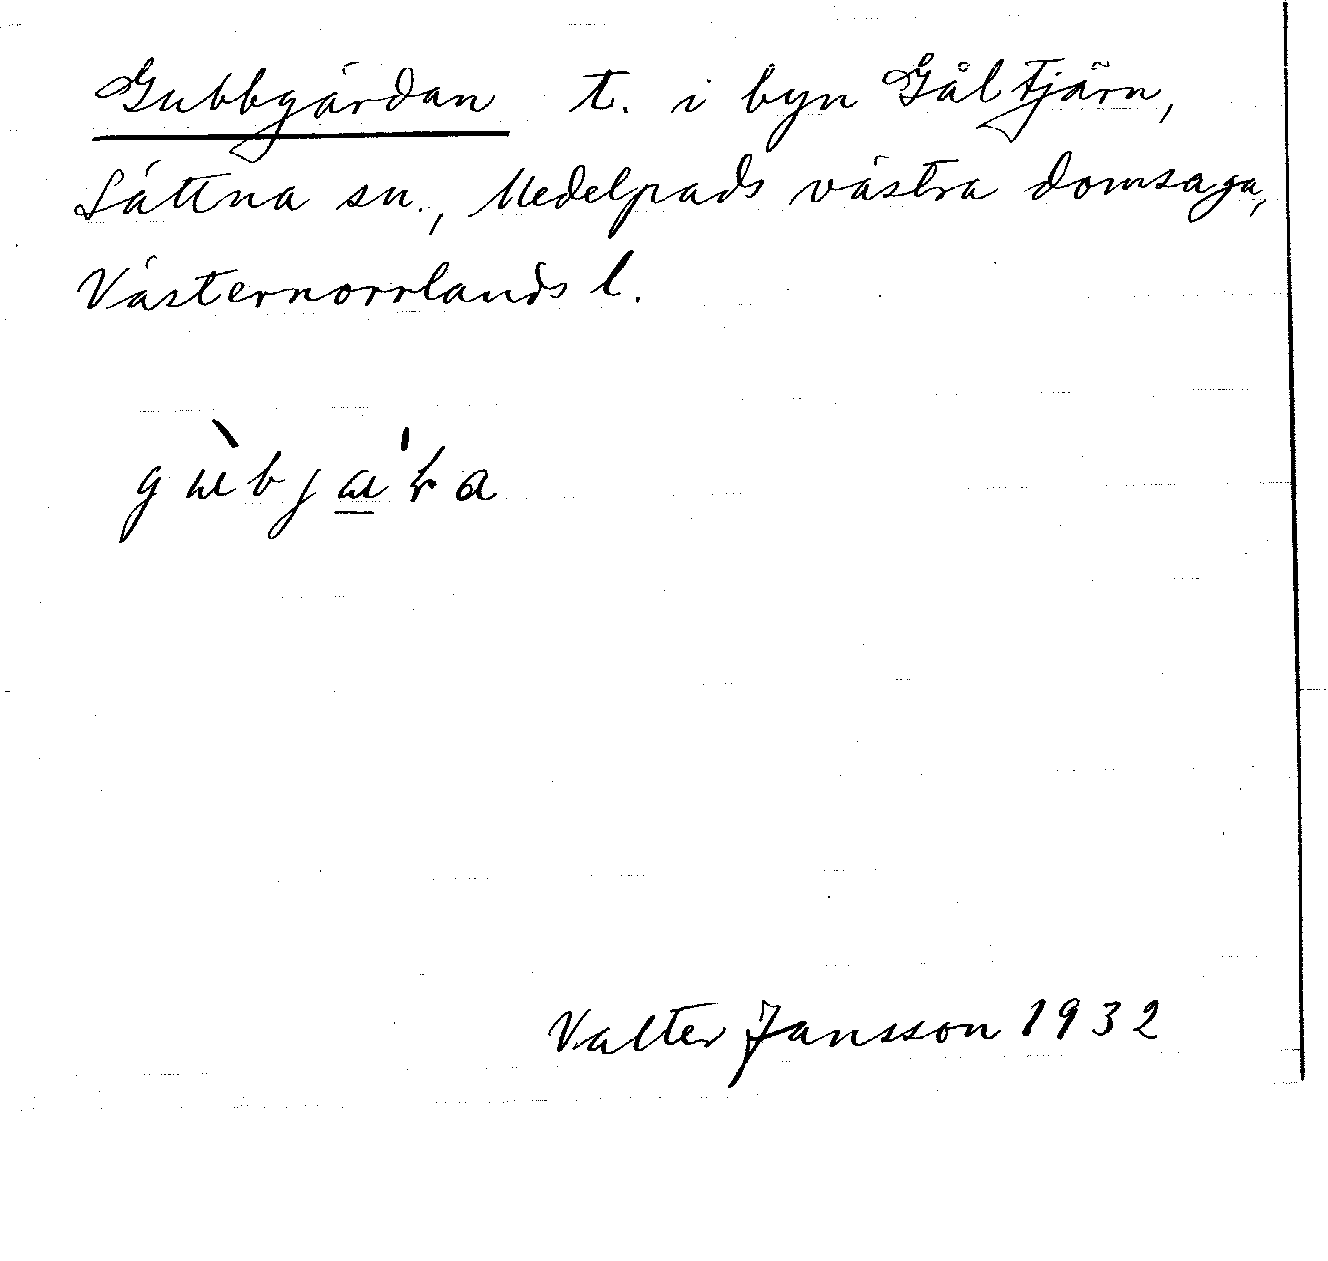 Gubbgärdan t. i byn Gåltjärn,
Sättna sn., Medelpads västra domsaga,
Västernorrlands l.
Valter Jansson 1932